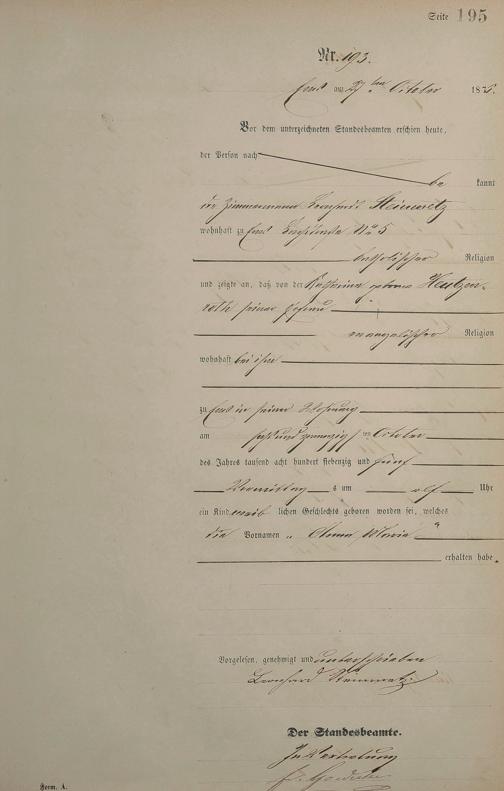 Seite 195
Nr. 193.
Ems am 27ten October 1875.
Vor dem unterzeichneten Standesbeamten erschien heute,
der Person nach
be kannt
der Zimmermann Leonhard Steinmetz
wohnhaft zu Ems No 5
katholischer Religion
und zeigte an, daß von der Katharina geborene
seiner Ehefrau
evangelischer Religion
wohnhaft bei ihm
zu Ems in seiner Wohnung
am sechsundzwanzigsten October
des Jahres tausend acht hundert siebenzig und fünf
Vormittags um elf Uhr
ein Kind weiblichen Geschlechts geboren worden sei, welches
die Vornamen „Anna Maria“
erhalten habe.
Vorgelesen, genehmigt und unterschrieben
Leonhard Steinmetz
Der Standesbeamte.
In Vertretung
Form. A.